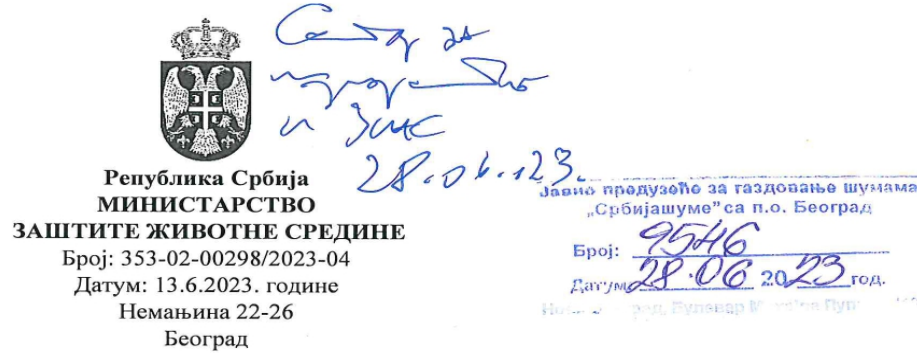 28.06.23.
Република Србија
МИНИСТАРСТВО
ЗАШТИТЕ ЖИВОТНЕ СРЕДИНЕ
Број: 353-02-00298/2023-04
Датум: 13.6.2023. године
Немањина 22-26
Београд
Јавно предузеће за газдовање шумама
„Србијашуме" са п.о. Београд
Број: 9546
Датум 28.06 2023 год.
Булевар